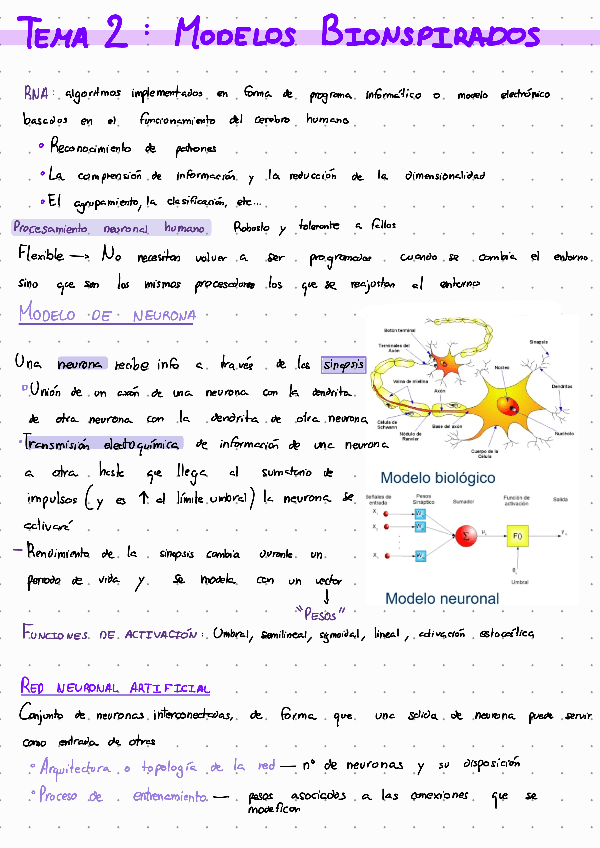 TEMA 2: MODELOS BIONSPIRADOS
RNA: algoritmos implementados en forma de programa informático o modelo electrónico
basados en el funcionamiento del cerebro humano
• Reconocimiento de patrones
• La comprensión de información y la reducción de la dimensionalidad
• El agrupamiento, la clasificación, etc...
Procesamiento neuronal humano Robusto y tolerante a fallos
Flexible → No necesitan volver a ser programados cuando se cambia el entorno
sino que son los mismos procesadores los que se reajustan al entorno
MODELO DE NEURONA
Una neurona recibe info a través de las sinapsis
• Unión de un axón de una neurona con la dendrita
de otra neurona con la dendrita de otra neurona
• Transmisión electroquímica de información de una neurona
a otra hasta que llega al sumatorio de
impulsos (y es ↑ al límite umbral) la neurona se
activará
- Rendimiento de la sinapsis cambia durante un
periodo de vida y se modela con un vector
↓
"PESOS"
Botón terminal
Terminales del Axón
Sinapsis
Núcleo
Vaina de mielina
Axón
Dendritas
Célula de Schwann
Nódulo de Ranvier
Base del axón
Nucléolo
Cuerpo de la Célula
Modelo biológico
Señales de entrada
Pesos Sináptico
Sumador
Función de activación
Salida
Σ
F()
Umbral
Modelo neuronal
FUNCIONES DE ACTIVACIÓN: Umbral, semilineal, sigmoidal, lineal, activación estocástica
RED NEURONAL ARTIFICIAL
Conjunto de neuronas interconectadas, de forma que una salida de neurona puede servir
como entrada de otras
• Arquitectura o topología de la red — nº de neuronas y su disposición
• Proceso de entrenamiento — pesos asociados a las conexiones que se
modifican